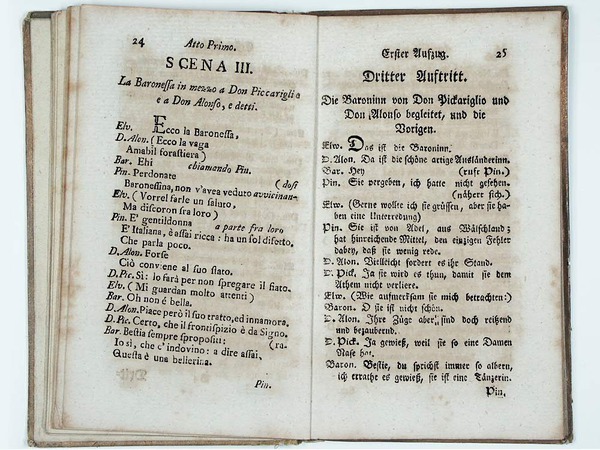 24 Atto Primo.
SCENA III.
La Baronessa in mezzo a Don Piccariglio
e a Don Alonso, e detti.
Elv. Ecco la Baronessa,
D. Alon. (Ecco la vaga
Amabil forastiera)
Bar. Ehi chiamando Pin.
Pin. Perdonate (dosi
Baronessina, non v'avea veduto avvicinan-
Elv. (Vorrei farle un saluto,
Ma discoron fra loro)
Pin. E' gentildonna a parte fra loro
E' Italiana, è assai ricca: ha un sol difetto.
Che parla poco.
D. Alon. Forse
Ciò conviene al suo stato.
D. Pic. Sì: lo farà per non spregare il fiato.
Elv. (Mi guardan molto attenti)
Bar. Oh non è bella.
D. Alon. Piace però il suo tratto, ed innamora.
D. Pic. Certo, che il frontispizio è da Signo.
Bar. Bestia sempre spropositi: (ra.
Io sì, che c'indovino: a dire assai,
Questa è una ballerina.
Pin.
Erster Aufzug. 25
Dritter Auftritt.
Die Baroninn von Don Pickariglio und
Don Alonso begleitet, und die
Vorigen.
Elw. Das ist die Baroninn.
D. Alon. Da ist die schöne artige Ausländerinn.
Bar. Hey (ruft Pin.)
Pin. Sie vergeben, ich hatte nicht gesehen.
(nähert sich.)
Elw. (Gerne wollte ich sie grüssen, aber sie ha-
ben eine Unterredung)
Pin. Sie ist von Adel, aus Wälschland;
hat hinreichende Mittel, den einzigen Fehler
dabey, daß sie wenig rede.
D. Alon. Vielleicht fordert es ihr Stand.
D. Pick. Ja sie wird es thun, damit sie dem
Athem nicht verliere.
Elw. (Wie aufmerksam sie mich betrachten:)
Baron. O sie ist nicht schön.
D. Alon. Ihre Züge aber, sind doch reitzend
und bezaubernd.
D. Pick. Ja gewieß, weil sie so eine Damen
Nase hat.
Baron. Bestie, du sprichst immer so albern,
ich errathe es gewieß, sie ist eine Tänzerin.
Pin.